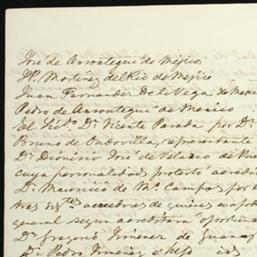 José de Ansoategui de Méjico
M. Martinez del Rio de Mejico
Juan Fernandez de la Vega de Mexico
Pedro de Ansoategui de Mexico
El Sr. Dn. Vicente Parada por Dn.
Bruno de representante
Dn. Dionisio José de Velasco de
cuya personalidad protestó acreditar
Dn. Mauricio de Ma. Campos por
tres acreedores de quienes es apod
general segun acreditara oportuna
Dn. Gregorio Jimenez de
Dn. Pedro Jimenez e hijo